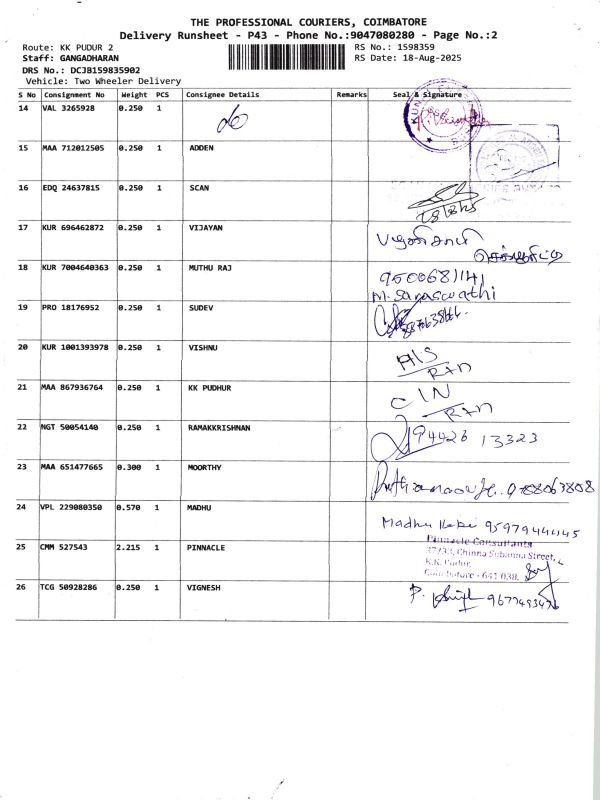 THE PROFESSIONAL COURIERS, COIMBATORE
Delivery Runsheet - P43 - Phone No.:9047080280 - Page No.:2
Route: KK PUDUR 2
RS No.: 1598359
Staff: GANGADHARAN
RS Date: 18-Aug-2025
DRS No.: DCJB159835902
Vehicle: Two Wheeler Delivery
S No Consignment No Weight PCS Consignee Details Remarks Seal & Signature
14 VAL 3265928 0.250 1
15 MAA 712012505 0.250 1 ADDEN
16 EDQ 24637815 0.250 1 SCAN
18/8/25
17 KUR 696462872 0.250 1 VIJAYAN
18 KUR 7004640363 0.250 1 MUTHU RAJ
M. Saraswathi
19 PRO 18176952 0.250 1 SUDEV
20 KUR 1001393978 0.250 1 VISHNU
RTN
21 MAA 867936764 0.250 1 KK PUDHUR
C IN
RTN
22 NGT 50054140 0.250 1 RAMAKKRISHNAN
94426 13323
23 MAA 651477665 0.300 1 MOORTHY
9788063808
24 VPL 229080350 0.570 1 MADHU
Madhu
25 CMM 527543 2.215 1 PINNACLE
Pinnacle Consultants
37/33, Chinna Subanna Street,
K.K. Pudur,
Coimbatore - 641 038.
26 TCG 50928286 0.250 1 VIGNESH